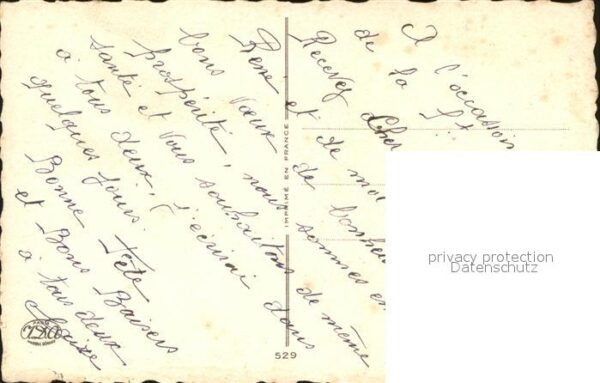 A l'occasion
de la
Recevez Cher
René et de moi
bons vœux de bonheur
prospérité, nous sommes en
santé et vous souhaitons de même
à tous deux, j'écrirai dans
quelques jours.
Bonne Fête
et Bons Baisers
à tous deux
IMPRIMÉ EN FRANCE
529
privacy protection
Datenschutz